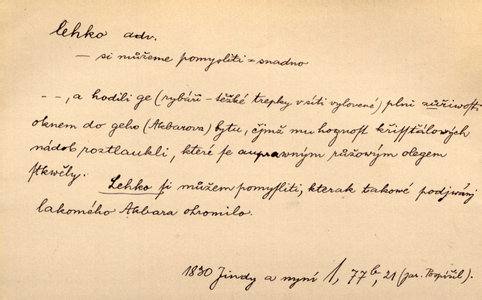 lehko adv.
— si můžeme pomysliti = snadno
- -, a hodili ge (rybáři – těžké trepky v síti vylovené) plni zůřiwosti
oknem do geho (Akbarova) bytu, čjmž mu hognost křišťálowých
nádob roztlaukli, které se auprawným růžowým olegem
stkwěly. Lehko si můžem pomysliti, kterak takowé podjwánj
lakomého Akbara ohromilo.
1830 Jindy a nyní 1, 77b, 21 (Jar. Pospíšil).